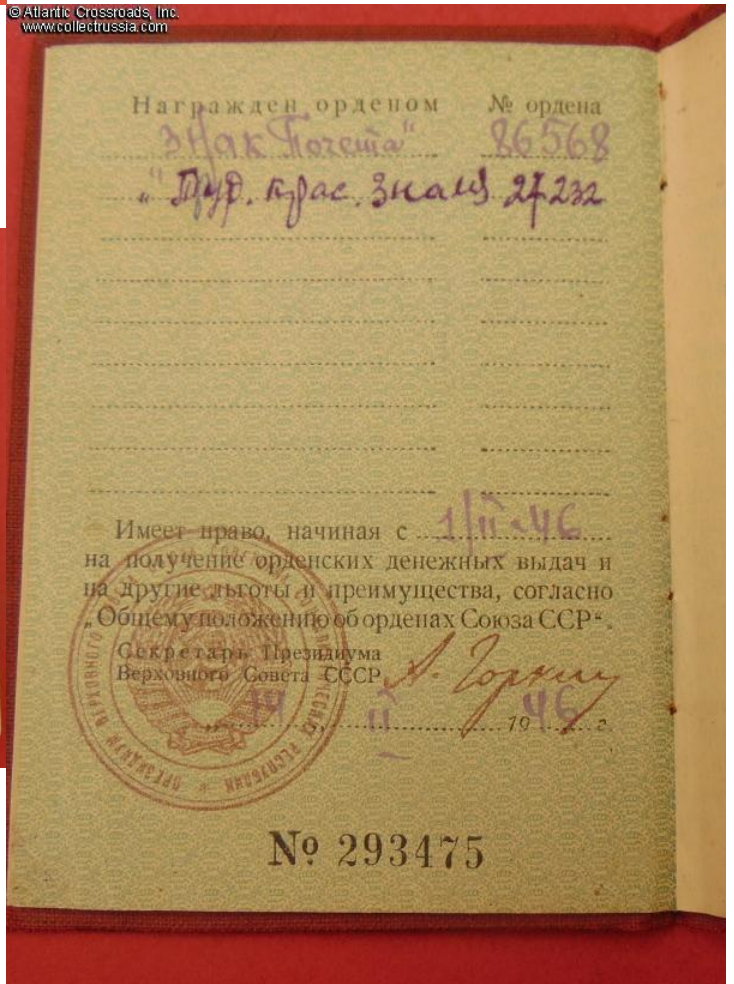 © Atlantic Crossroads, Inc.
www.collectrussia.com
Награжден орденом № ордена
"Знак Почета" 86568
" Труд. крас. Знамя 27232
Имеет право, начиная с 1/II-46
на получение орденских денежных выдач и
на другие льготы и преимущества, согласно
„Общему положению об орденах Союза ССР“.
Секретарь Президиума
Верховного Совета СССР А. Горкин
„14“ II 1946 г.
ПРЕЗИДИУМ ВЕРХОВНОГО РЕСПУБЛИК
№ 293475